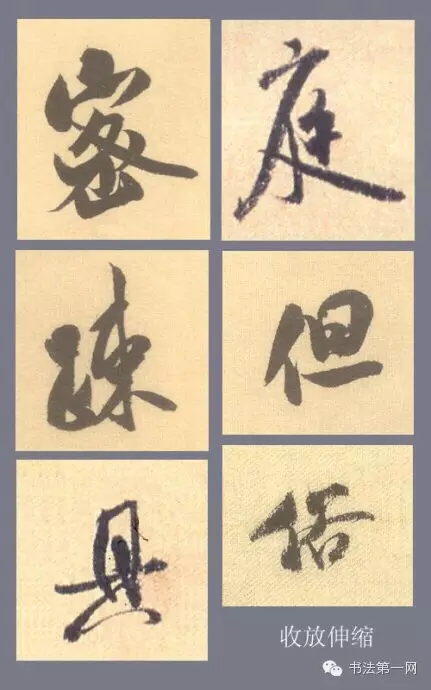 密
庭
踈
但
具
俗
收放伸缩
书法第一网